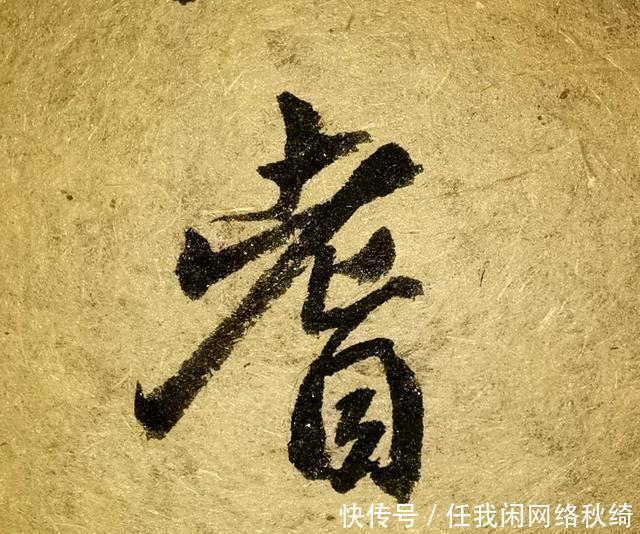 耆
快传号 / 任我闲网络秋绮